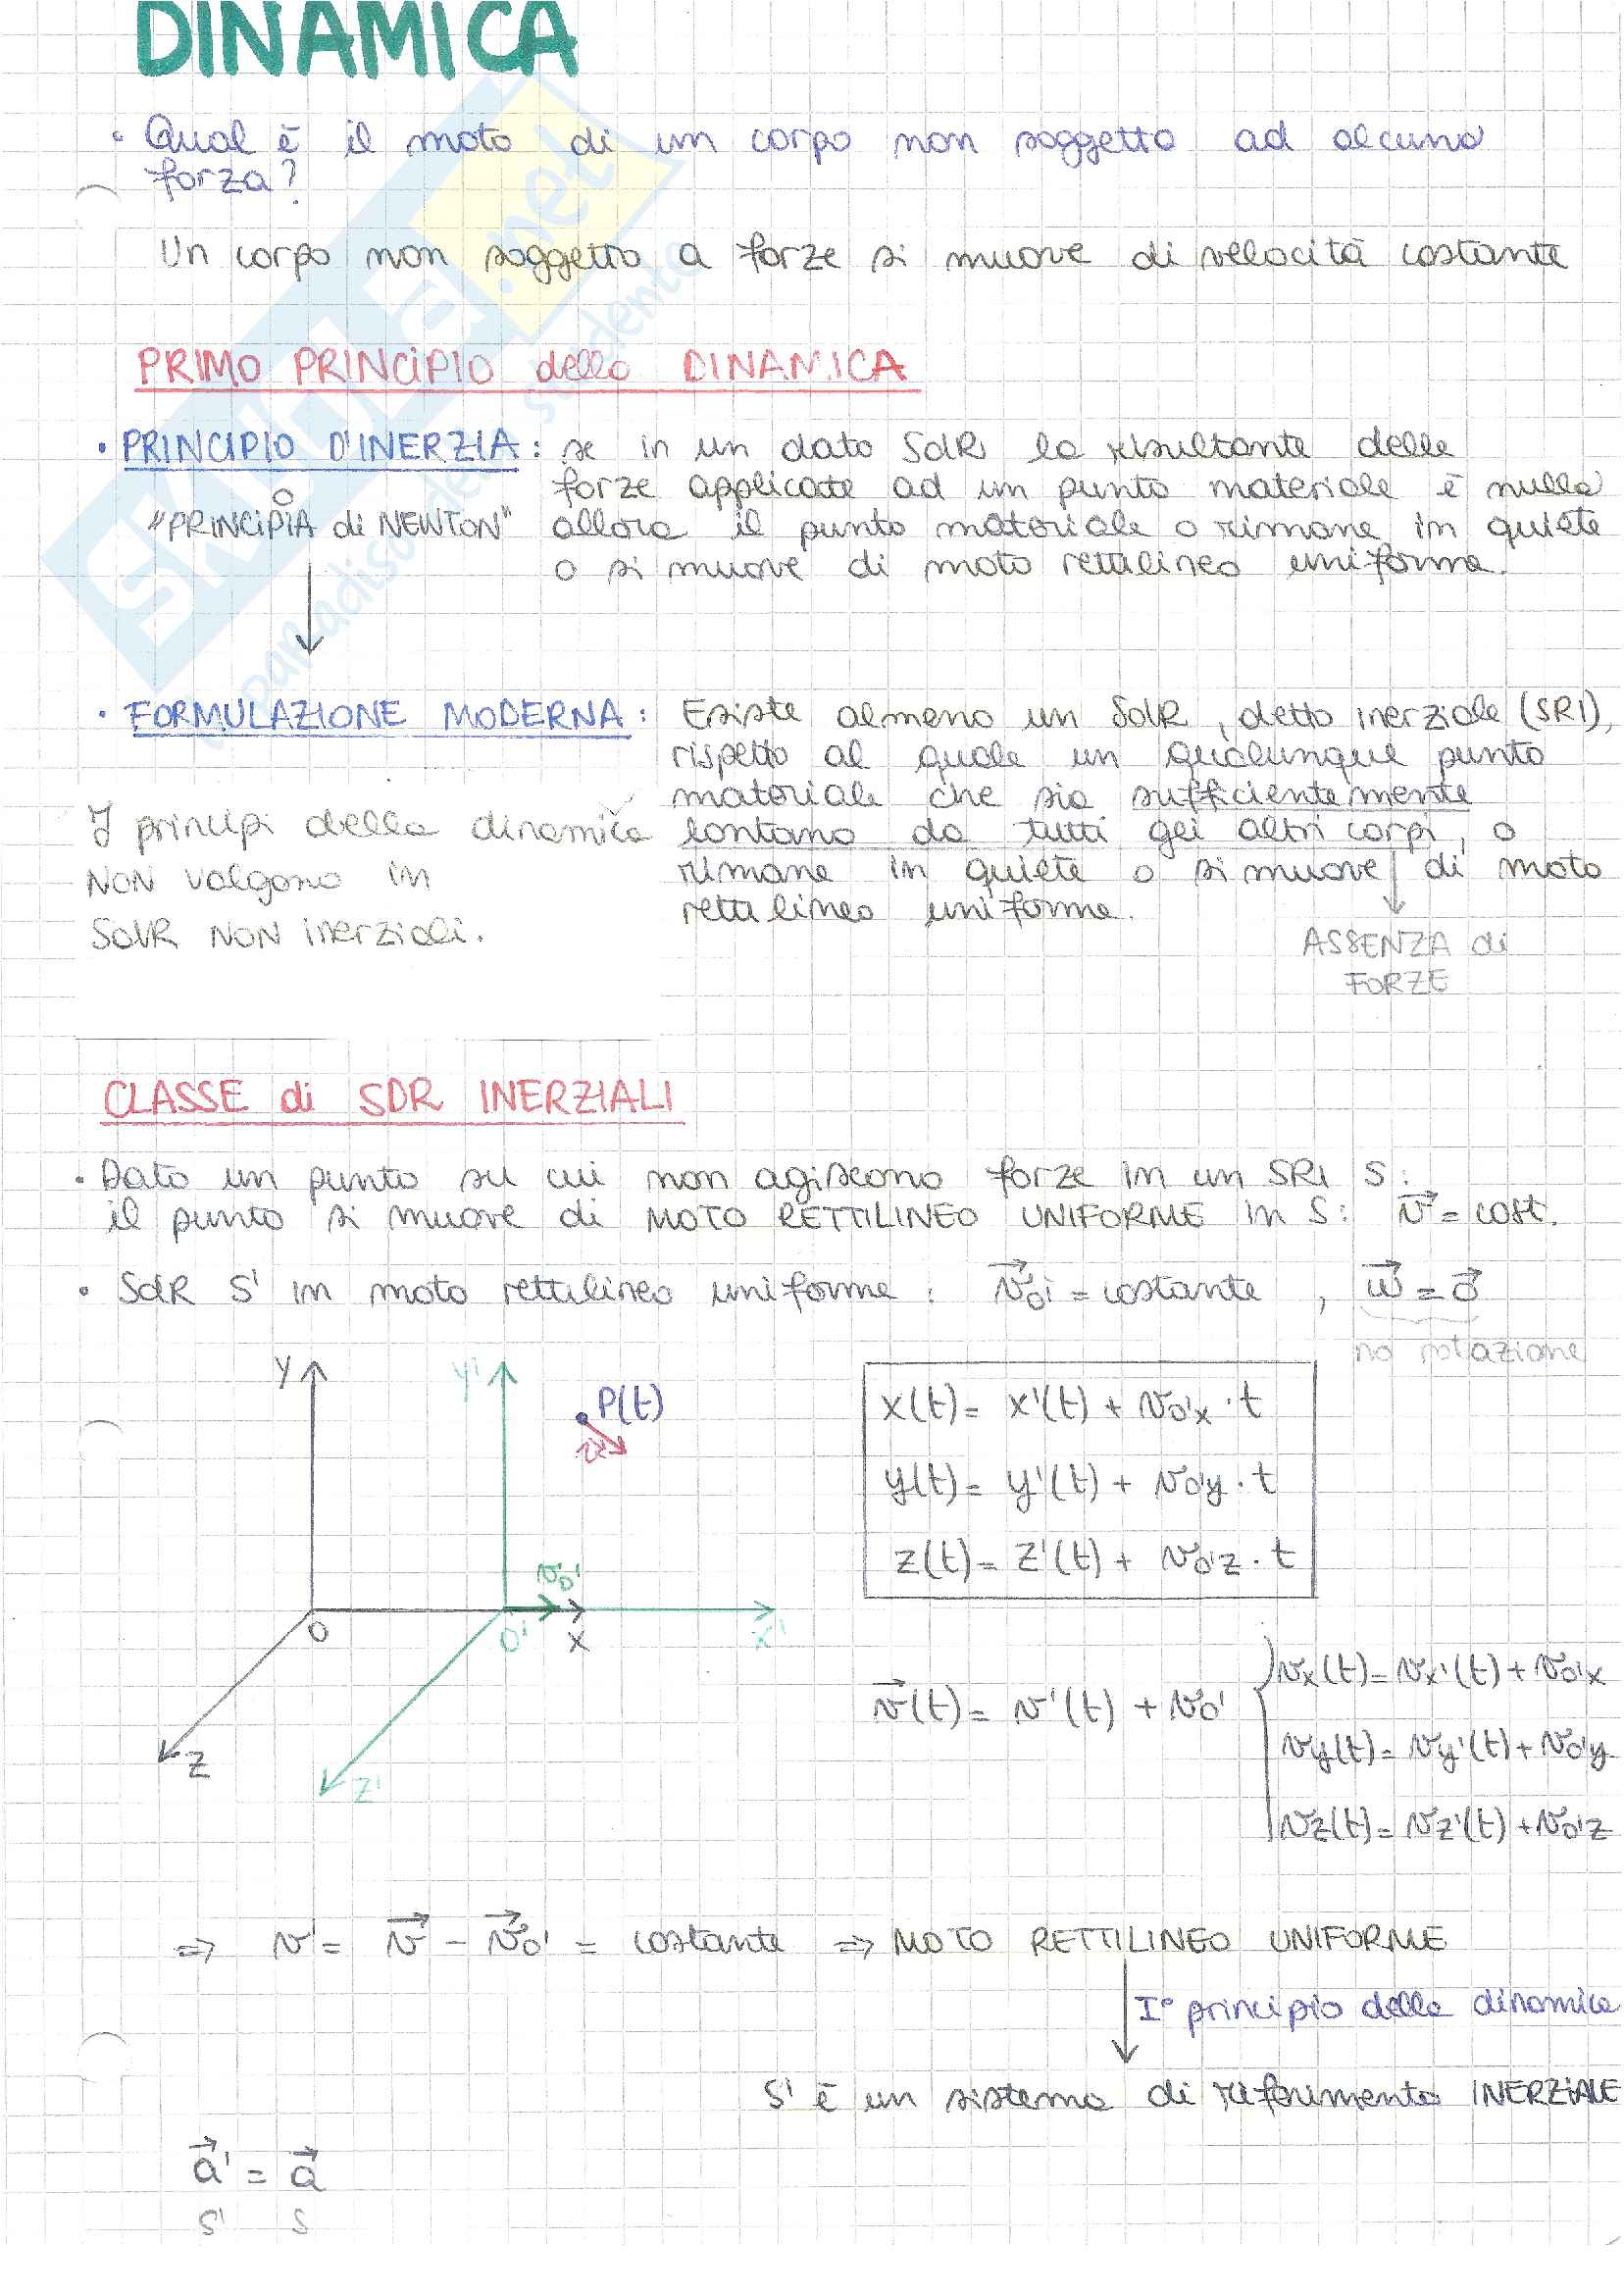 DINAMICA
• Qual è il moto di un corpo non soggetto ad alcuna
forza?
Un corpo non soggetto a forze si muove di velocità costante
PRIMO PRINCIPIO della DINAMICA
• PRINCIPIO D'INERZIA: se in un dato SdR la risultante delle
o
forze applicate ad un punto materiale è nulla
"PRINCIPIA di NEWTON"
allora il punto materiale o rimane in quiete
o si muove di moto rettilineo uniforme.
• FORMULAZIONE MODERNA: Esiste almeno un SdR, detto inerziale (SRI),
rispetto al quale un qualunque punto
materiale che sia sufficientemente
lontano da tutti gli altri corpi, o
rimane in quiete o si muove di moto
rettilineo uniforme.
ASSENZA di
FORZE
I principi della dinamica
NON valgono in
SdR NON inerziali.
CLASSE di SDR INERZIALI
• Dato un punto su cui non agiscono forze in un SRI S:
il punto si muove di MOTO RETTILINEO UNIFORME in S: v⃗ = cost.
• SdR S' in moto rettilineo uniforme: v⃗o' = costante, w⃗ = o⃗
no rotazione
y
y'
P(t)
v⃗
vo'
O
O'
x
x'
z
z'
x(t) = x'(t) + vo'x · t
y(t) = y'(t) + vo'y · t
z(t) = z'(t) + vo'z · t
v⃗(t) = v'(t) + vo'
vx(t) = vx'(t) + vo'x
vy(t) = vy'(t) + vo'y
vz(t) = vz'(t) + vo'z
⇒ v' = v⃗ - v⃗o' = costante ⇒ MOTO RETTILINEO UNIFORME
I° principio della dinamica
S' è un sistema di riferimento INERZIALE
a⃗' = a⃗
S' S
SKUOLA.net
il paradiso dello studente